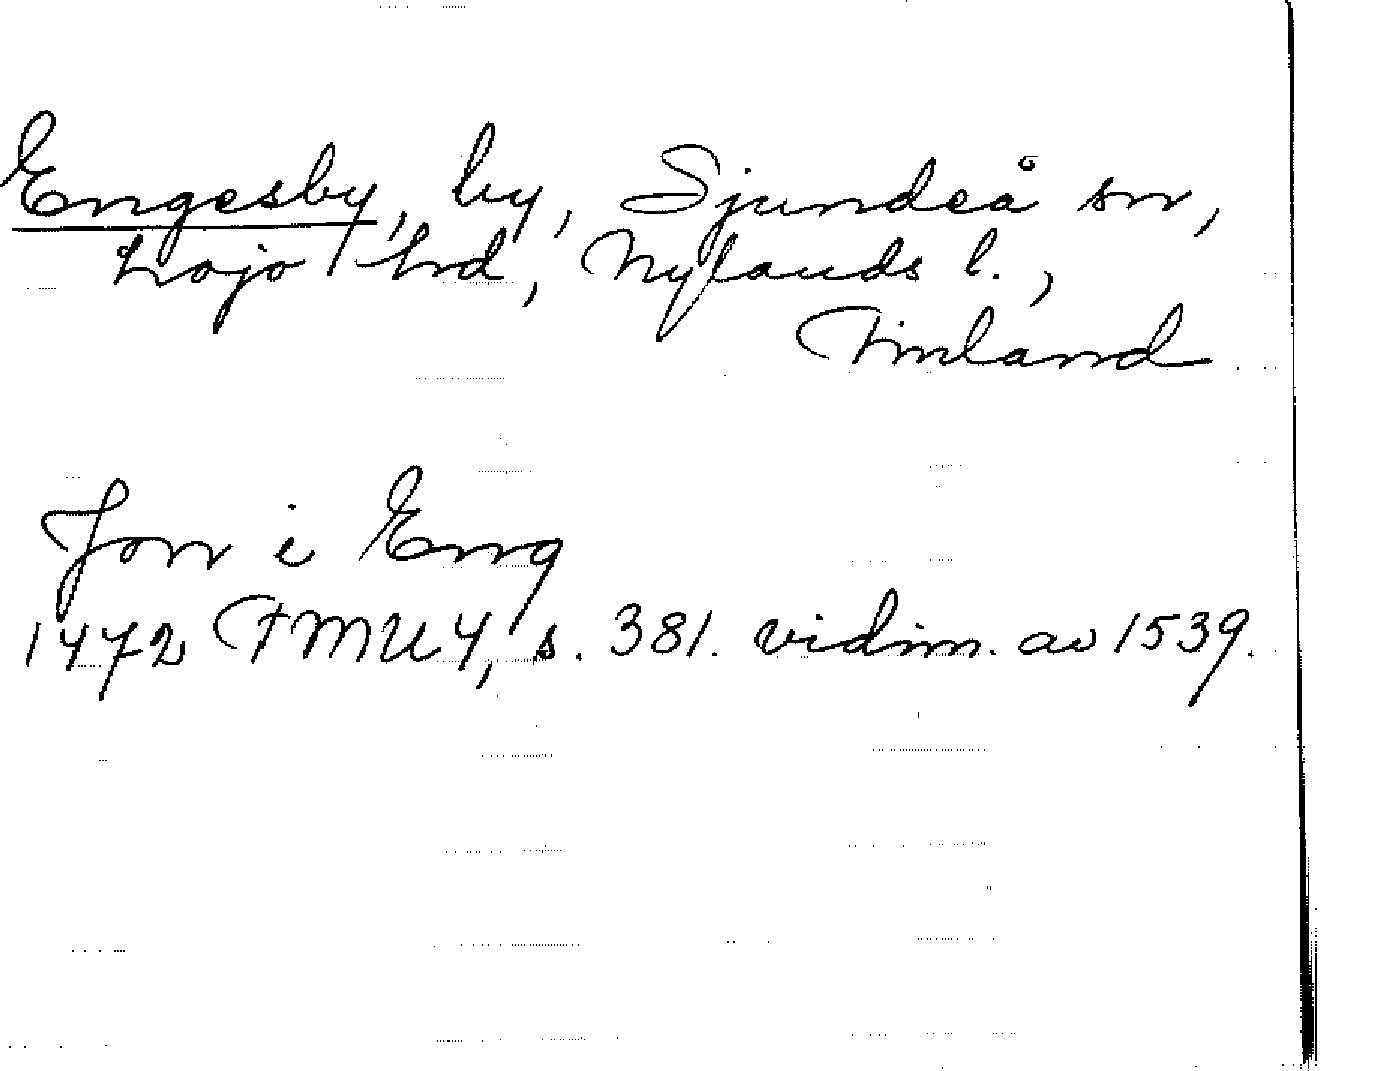 Engesby, by, Sjundeå sn,
Lojo hd, Nylands l.,
Finland
Jon i Eng
1472 FMU 4, s. 381. vidim. av 1539.